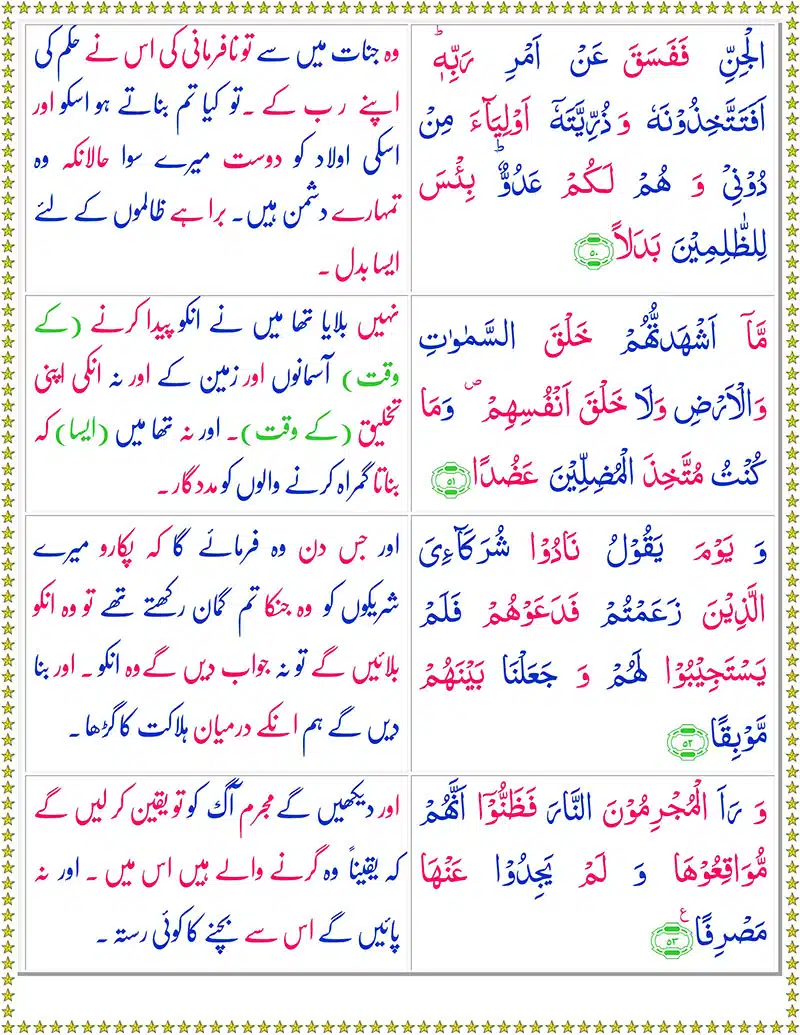 الْجِنِّ فَفَسَقَ عَنْ اَمْرِ رَبِّهٖؕ
اَفَتَتَّخِذُوْنَهٗ وَ ذُرِّیَّتَهٗۤ اَوْلِیَآءَ مِنْ
دُوْنِیْ وَ هُمْ لَكُمْ عَدُوٌّؕ بِئْسَ
لِلظّٰلِمِیْنَ بَدَلًا ﴿۵۰﴾
وہ جنات میں سے تو نافرمانی کی اس نے حکم کی
اپنے رب کے ۔ تو کیا تم بناتے ہو اسکو اور
اسکی اولاد کو دوست میرے سوا حالانکہ وہ
تمہارے دشمن ہیں۔ برا ہے ظالموں کے لئے
ایسا بدل ۔
مَاۤ اَشْهَدْتُّهُمْ خَلْقَ السَّمٰوٰتِ
وَالْاَرْضِ وَلَا خَلْقَ اَنْفُسِهِمْ۪ وَمَا
كُنْتُ مُتَّخِذَ الْمُضِلِّیْنَ عَضُدًا ﴿۵۱﴾
نہیں بلایا تھا میں نے انکو پیدا کرنے (کے
وقت) آسمانوں اور زمین کے اور نہ انکی اپنی
تخلیق (کے وقت)۔ اور نہ تھا میں (ایسا) کہ
بناتا گمراہ کرنے والوں کو مددگار۔
وَ یَوْمَ یَقُوْلُ نَادُوْا شُرَكَآءِیَ
الَّذِیْنَ زَعَمْتُمْ فَدَعَوْهُمْ فَلَمْ
یَسْتَجِیْبُوْا لَهُمْ وَ جَعَلْنَا بَیْنَهُمْ
مَّوْبِقًا ﴿۵۲﴾
اور جس دن وہ فرمائے گا کہ پکارو میرے
شریکوں کو وہ جنکا تم گمان رکھتے تھے تو وہ انکو
بلائیں گے تو نہ جواب دیں گے وہ انکو ۔ اور بنا
دیں گے ہم انکے درمیان ہلاکت کا گڑھا ۔
وَ رَاَ الْمُجْرِمُوْنَ النَّارَ فَظَنُّوْۤا اَنَّهُمْ
مُّوَاقِعُوْهَا وَ لَمْ یَجِدُوْا عَنْهَا
مَصْرِفًا ﴿۵۳﴾ ع
اور دیکھیں گے مجرم آگ کو تو یقین کر لیں گے
کہ یقیناً وہ گرنے والے ہیں اس میں ۔ اور نہ
پائیں گے اس سے بچنے کا کوئی رستہ ۔